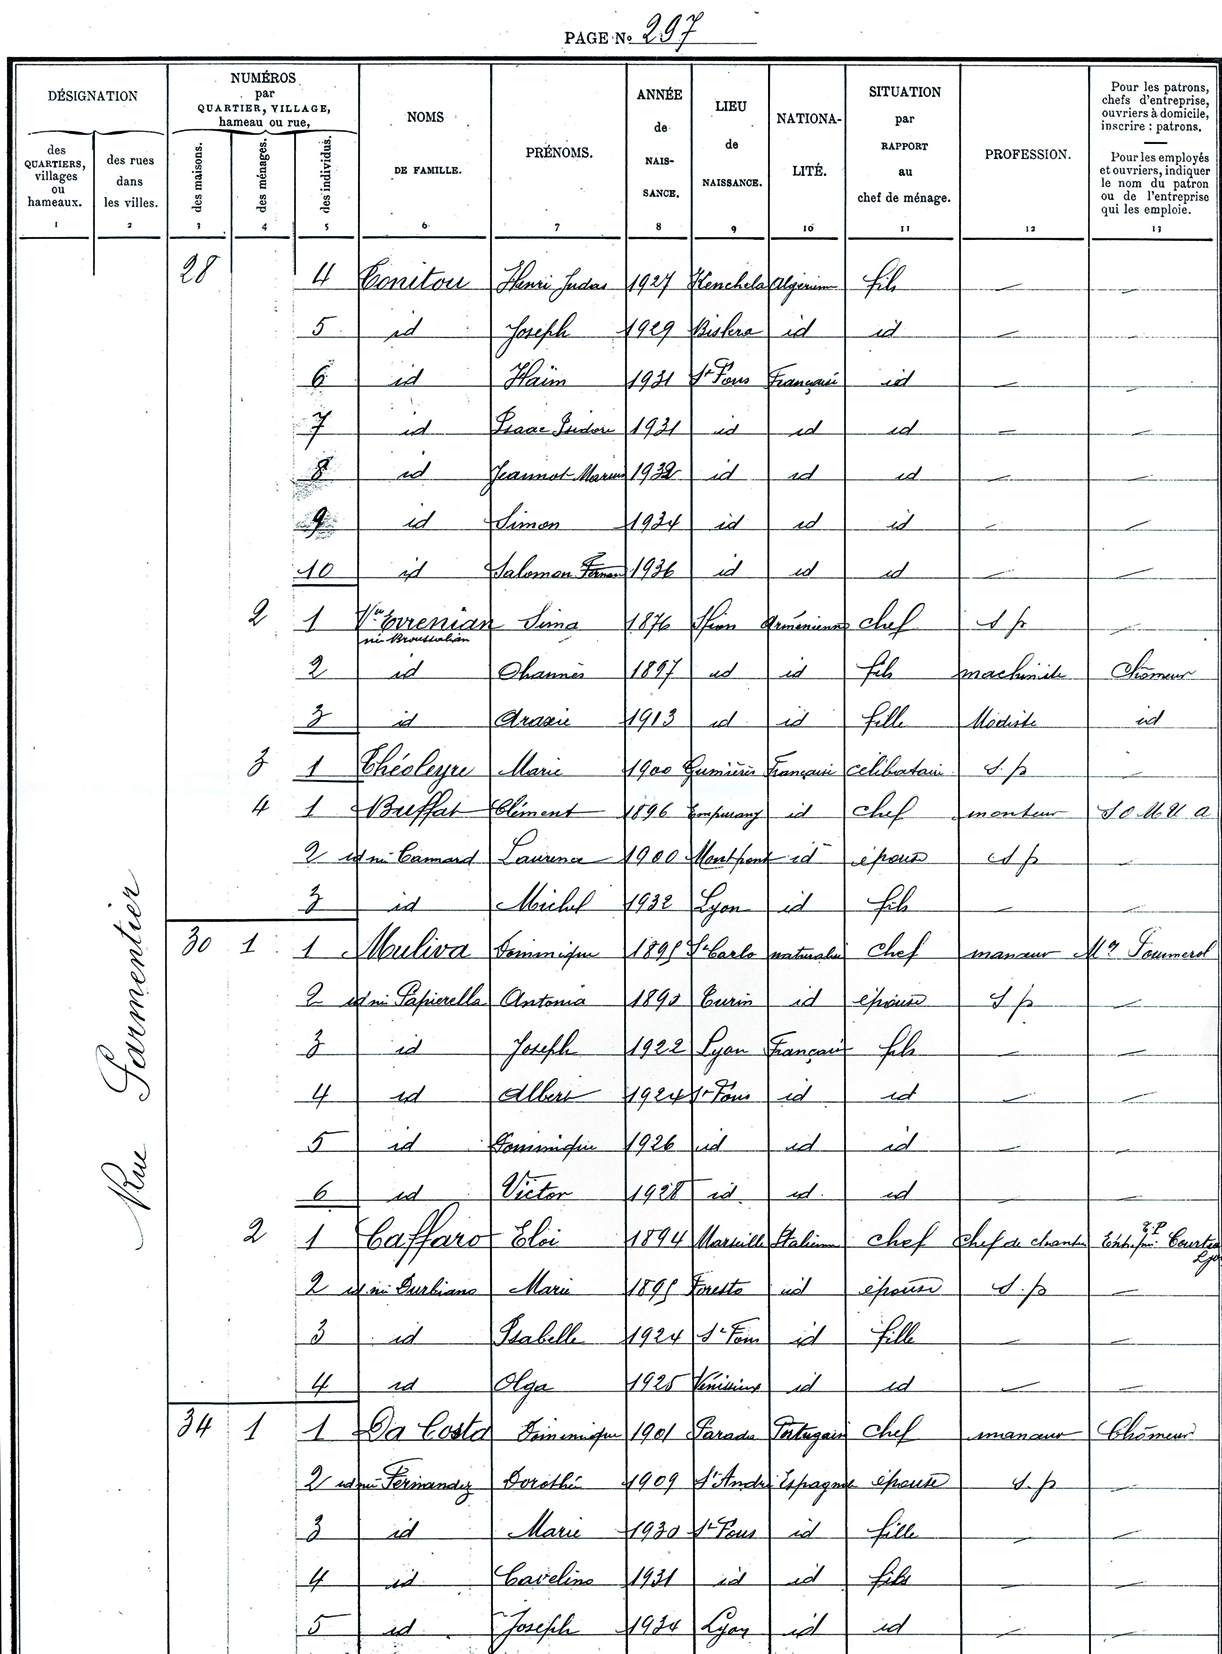 PAGE No 297
DÉSIGNATION
des QUARTIERS, villages ou hameaux. 1
des rues dans les villes. 2
NUMÉROS par QUARTIER, VILLAGE, hameau ou rue,
des maisons. 3
des ménages. 4
des individus. 5
NOMS DE FAMILLE. 6
PRÉNOMS. 7
ANNÉE de NAISSANCE. 8
LIEU de NAISSANCE. 9
NATIONALITÉ. 10
SITUATION par RAPPORT au chef de ménage. 11
PROFESSION. 12
Pour les patrons, chefs d'entreprise, ouvriers à domicile, inscrire : patrons.
Pour les employés et ouvriers, indiquer le nom du patron ou de l'entreprise qui les emploie. 13
Rue Parmentier
28 4 Tonitou Henri Judas 1927 Kenchela Algérienne fils — —
5 id Joseph 1929 Biskra id id — —
6 id Haïm 1931 St Fons Française id — —
7 id Isaac Isidore 1931 id id id — —
8 id Jeannot Marius 1932 id id id — —
9 id Simon 1934 id id id — —
10 id Salomon 1936 id id id — —
2 1 Vve Evrenian Sima 1876 Arménienne chef s p —
née Broussalian
2 id Ohannès 1897 id id fils machiniste Chômeur
3 id Araxie 1913 id id fille Modiste id
3 1 Théoleyre Marie 1900 Gumières Française célibataire s. p —
4 1 Buffat Clément 1896 Empurany id chef monteur S O M U A
2 id née Cannard Laurence 1900 Montpont id épouse s p —
3 id Michel 1932 Lyon id fils — —
30 1 1 Muliva Dominique 1895 St Carlo naturalisé chef manœuv Mr Pommerol
2 id née Papierella Antonia 1892 Turin id épouse s p —
3 id Joseph 1922 Lyon Française fils — —
4 id Albert 1924 St Fons id id — —
5 id Dominique 1926 id id id — —
6 id Victor 1928 id id id — —
2 1 Caffaro Eloi 1894 Marseille Italienne chef chef de chantier T.P Courtia Lyon
2 id née Durbiano Marie 1895 Foresto id épouse s. p —
3 id Isabelle 1924 St Fons id fille — —
4 id Olga 1925 Vénissieux id id — —
34 1 1 Da Costa Dominique 1901 Parada Portugais chef manœuv Chômeur
2 id née Fernandez Dorothée 1909 St André Espagnole épouse s. p —
3 id Marie 1930 St Fons id fille — —
4 id Cavelino 1931 id id fils — —
5 id Joseph 1934 Lyon id id — —